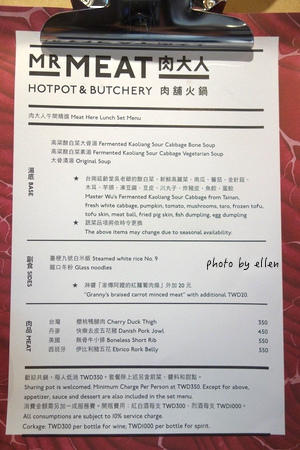 MR MEAT 肉大人
HOTPOT & BUTCHERY 肉舖火鍋
肉大人午間精選 Meat Here Lunch Set Menu
湯底 BASE
高粱酸白菜大骨湯 Fermented Kaoliang Sour Cabbage Bone Soup
高粱酸白菜素湯 Fermented Kaoliang Sour Cabbage Vegetarian Soup
大骨清湯 Original Soup
★ 台南區齡堂吳老師的酸白菜、新鮮高麗菜、南瓜、蕃茄、金針菇、
木耳、芋頭、凍豆腐、豆皮、川丸子、炸豬皮、魚餃、蛋餃
Master Wu's Fermented Kaoliang Sour Cabbage from Tainan,
fresh white cabbage, pumpkin, tomato, mushrooms, taro, frozen tofu,
tofu skin, meat ball, fried pig skin, fish dumpling, egg dumpling
★ 蔬菜品項將依時令更換
The above items may change due to seasonal availability.
副食 SIDES
臺梗九號白米飯 Steamed white rice No. 9
龍口冬粉 Glass noodles
★ 淋醬「湯傅阿嬤的紅蘿蔔肉燥」外加 20 元
"Granny's braised carrot minced meat" with additional TWD20.
photo by ellen
肉品 MEAT
台灣 櫻桃鴨腿肉 Cherry Duck Thigh 350
丹麥 快樂去皮五花豬 Danish Pork Jowl 450
美國 無骨牛小排 Boneless Short Rib 550
西班牙 伊比利豬五花 Ebrico Rork Belly 550
歡迎共鍋，每人低消 TWD350，套餐除上述另含前菜、醬料和甜點。
Sharing pot is welcomed. Minimum Charge Per Person at TWD350. Except for above,
appetizer, sauce and dessert are also included in the set menu.
消費金額需另加一成服務費。開瓶費用：紅白酒每支 TWD300、烈酒每支 TWD1000。
All consumptions are subject to 10% service charge.
Corkage: TWD300 per bottle for wine; TWD1000 per bottle for spirit.